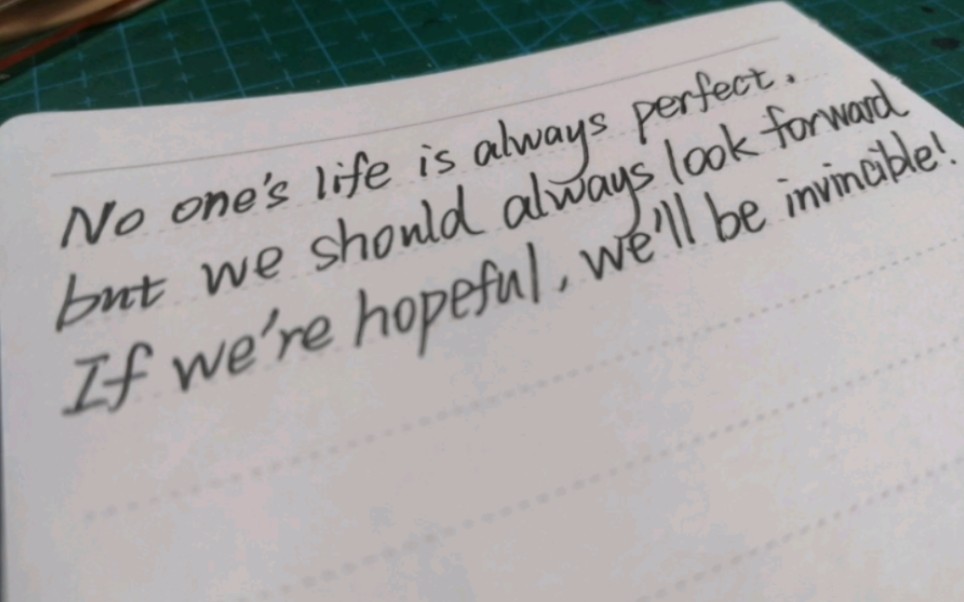 No one's life is always perfect.
but we should always look forward
If we're hopeful, we'll be invincible!.